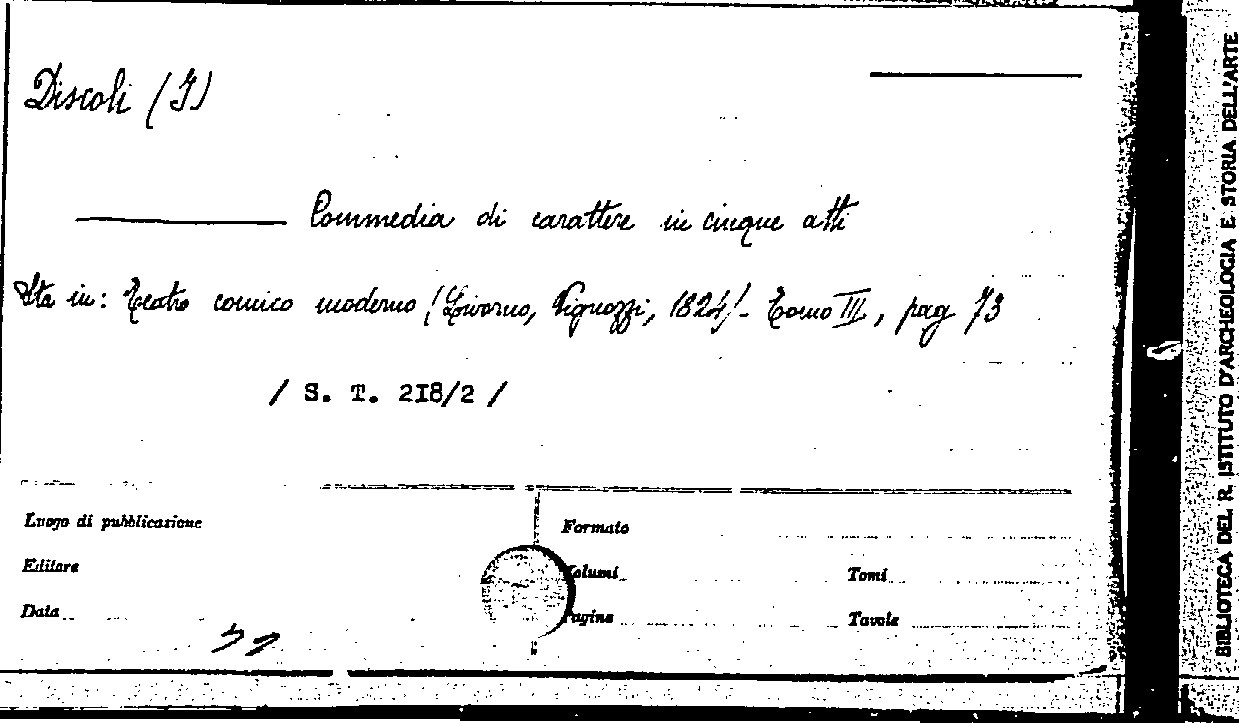 Discoli (I)
Commedia di carattere in cinque atti
Sta in: Teatro comico moderno (Livorno, Vignozzi, 1824) - Tomo III, pag 73
/ S. T. 218/2 /
Luogo di pubblicazione
Formato
Editore
Volumi
Tomi
Data
Pagine
Tavole
BIBLIOTECA DEL R. ISTITUTO D'ARCHEOLOGIA E STORIA DELL'ARTE